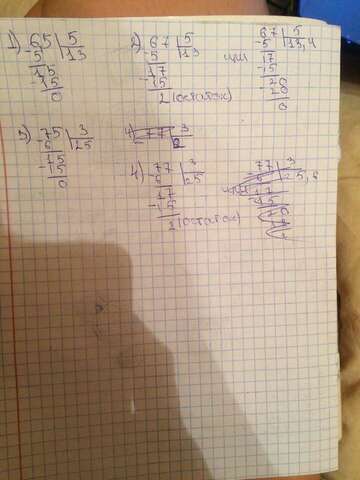 1) 65 | 5
- 5 | 13
15
- 15
0
2) 67 | 5
- 5 | 13
17
- 15
2 (остаток)
или
67 | 5
- 5 | 13,4
17
- 15
20
- 20
0
3) 75 | 3
- 6 | 25
15
- 15
0
4) 77 | 3
4) 77 | 3
- 6 | 25
17
- 15
2 (остаток)
77 | 3